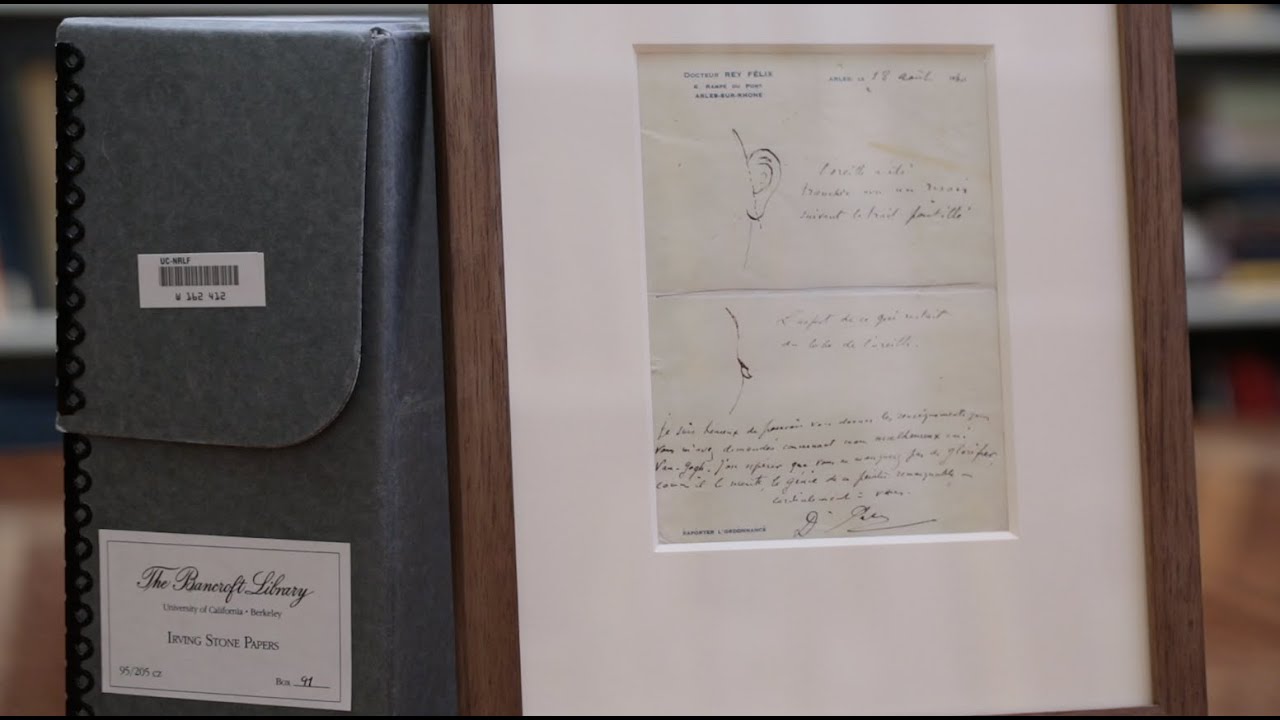 UC-NRLF
W 162 412
The Bancroft Library
University of California • Berkeley
IRVING STONE PAPERS
95/205 cz
Box 91
DOCTEUR REY FÉLIX
6, RAMPE DU PONT
ARLES-SUR-RHONE
ARLES, LE 18 août
L'oreille a été
tranchée avec un rasoir
suivant le trait pointillé
L'aspect de ce qui restait
du lobe de l'oreille.
Je suis heureux de pouvoir vous donner les renseignements que
vous m'avez demandés concernant mon malheureux ami
Van-Gogh. J'ose espérer que vous ne manquerez pas de glorifier
comme il le mérite, le génie de ce peintre remarquable,
cordialement à vous.
Dr Rey
RAPPORTER L'ORDONNANCE